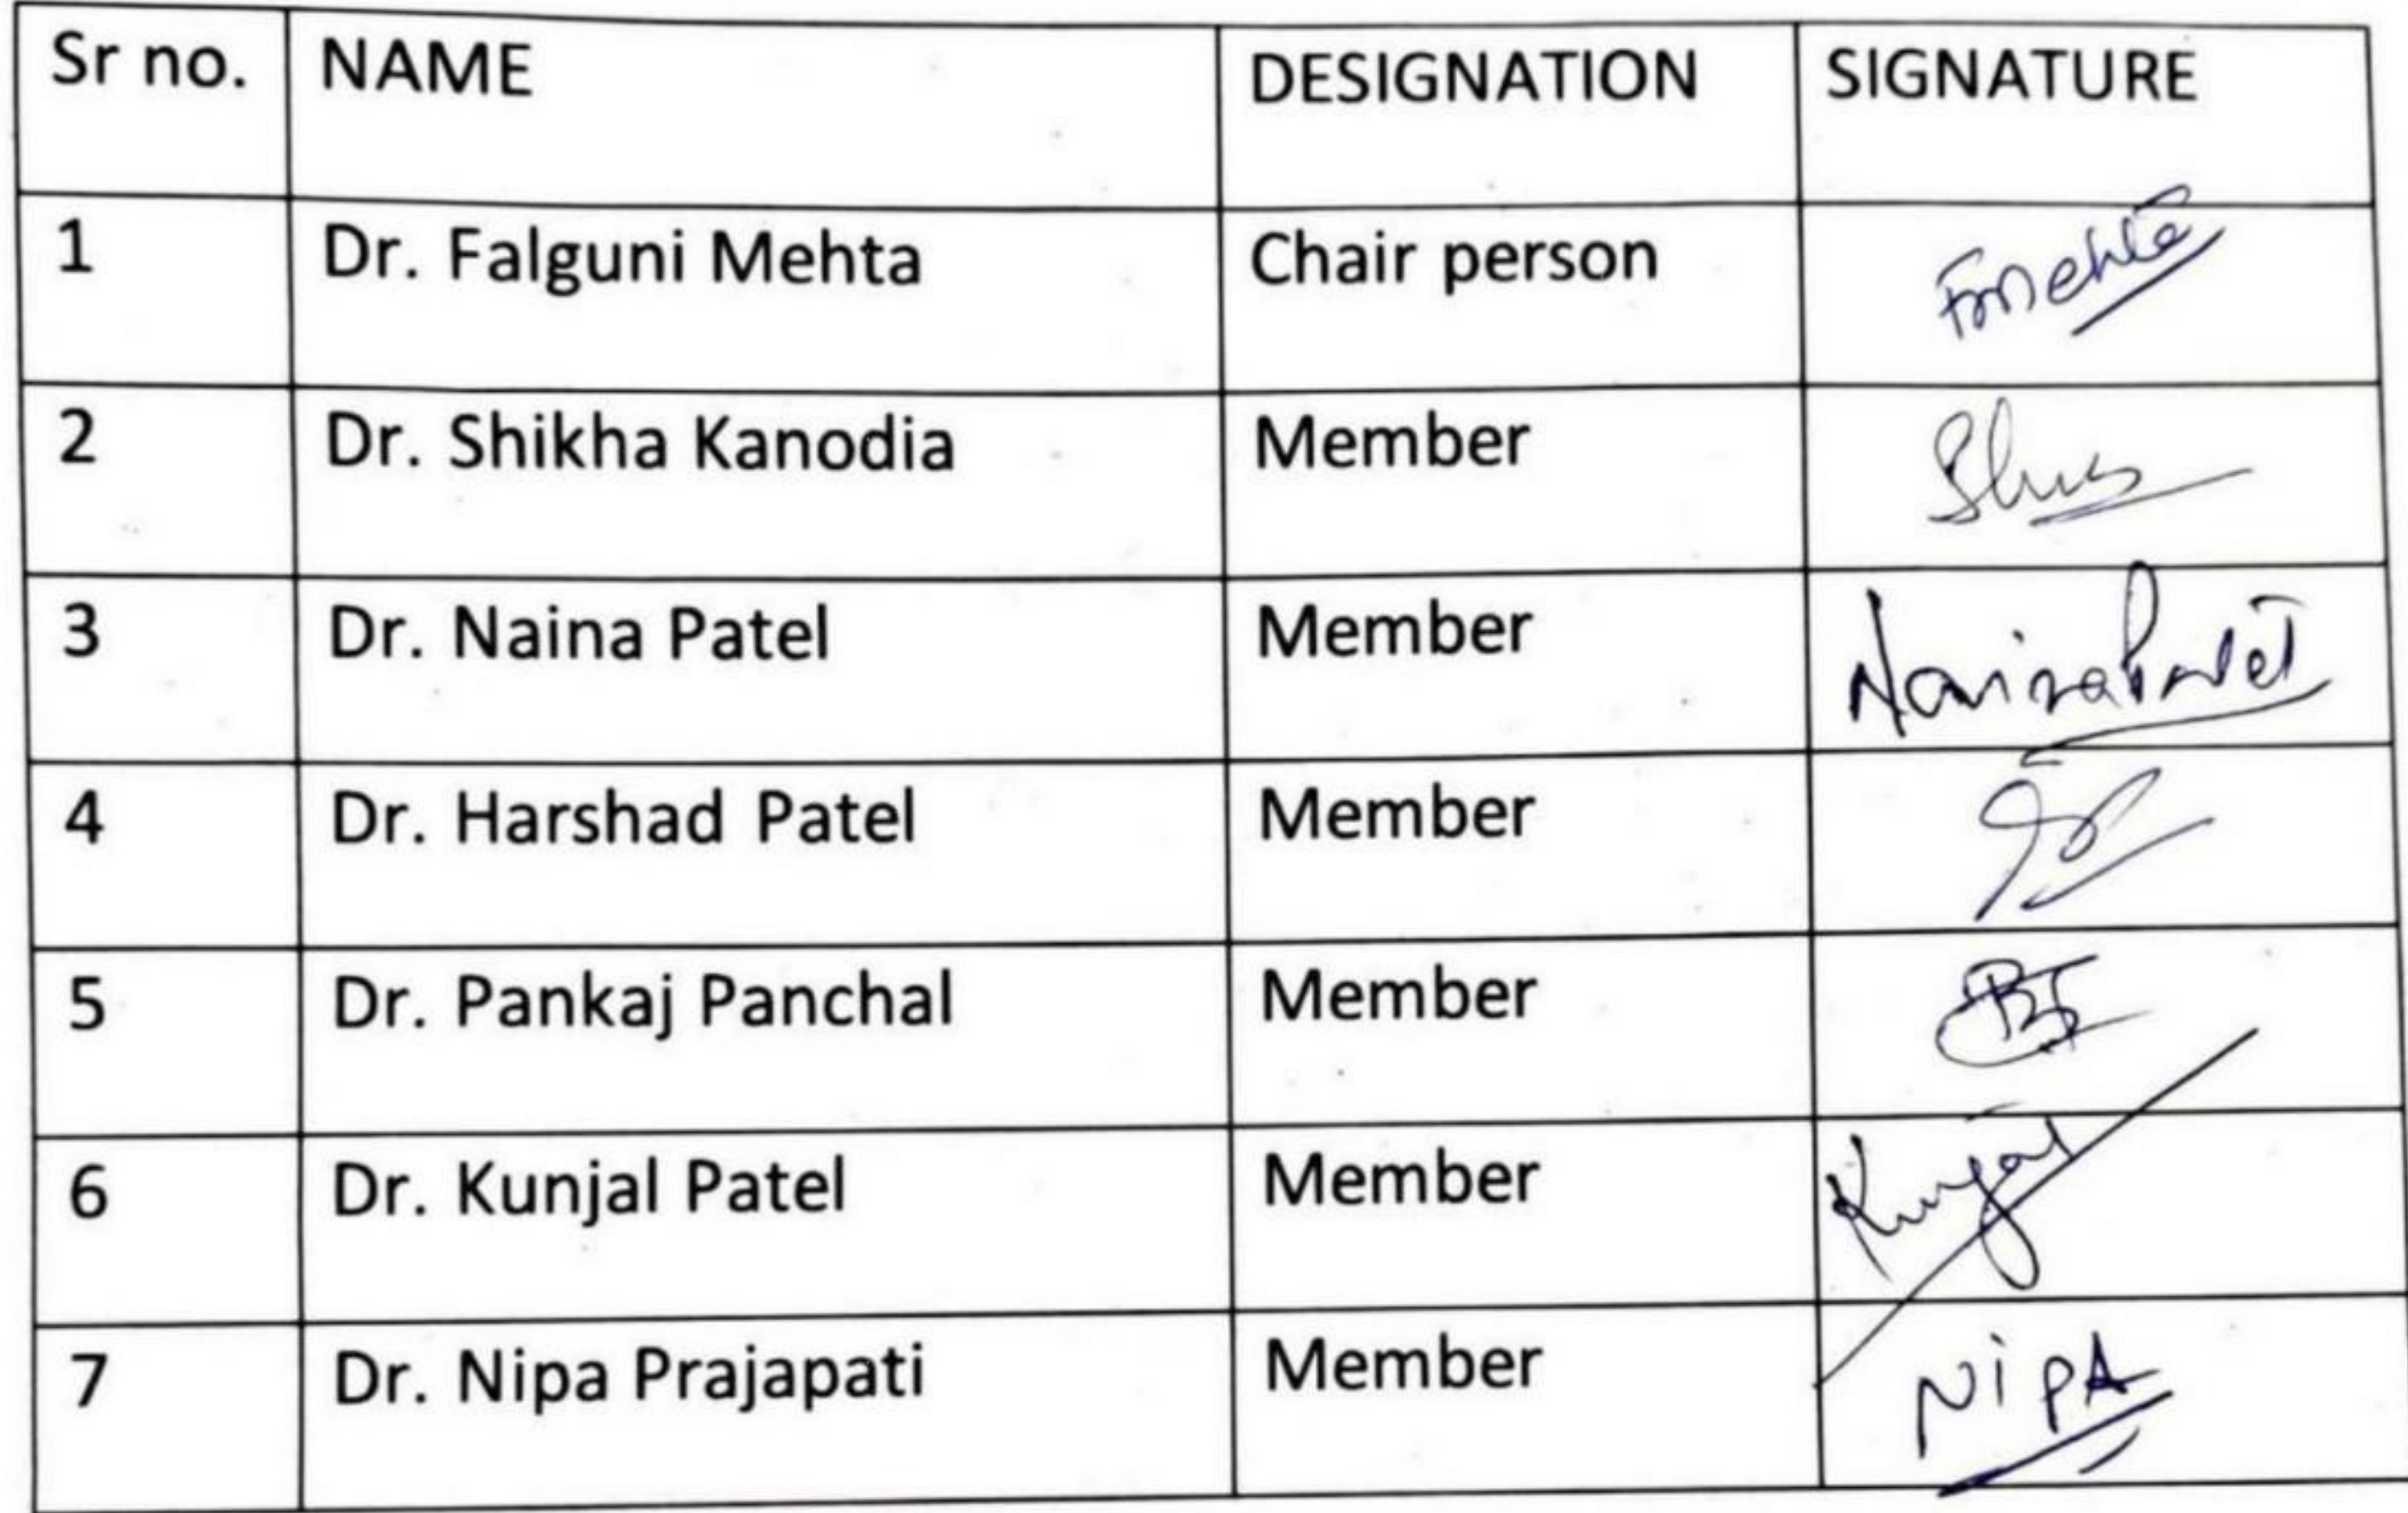 Sr no. NAME DESIGNATION SIGNATURE
1 Dr. Falguni Mehta Chair person Fmehta
2 Dr. Shikha Kanodia Member
3 Dr. Naina Patel Member Naina Patel
4 Dr. Harshad Patel Member
5 Dr. Pankaj Panchal Member
6 Dr. Kunjal Patel Member Kunjal
7 Dr. Nipa Prajapati Member NipA